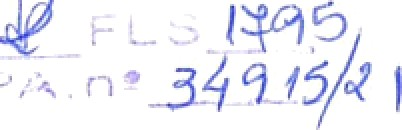 FLS 1795
P.A. nº 34915/21